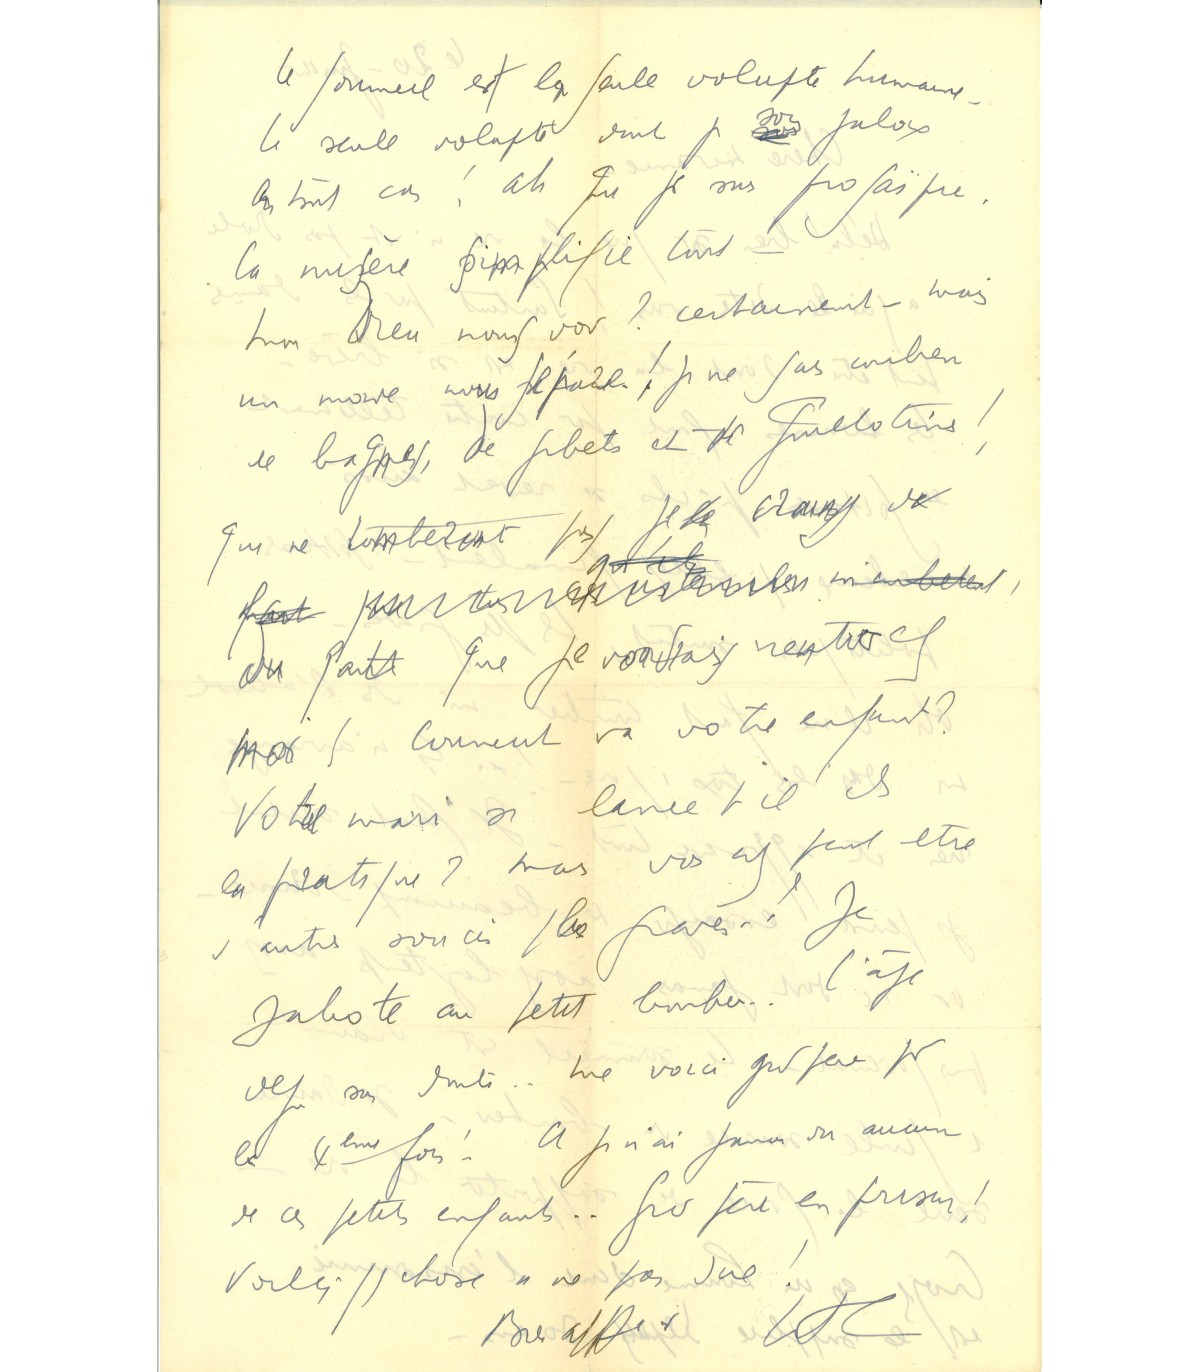 Le sommeil est la seule volupté humaine -
la seule volupté dont je sois jaloux
en tout cas ! ah que je suis prosaïque.
La misère simplifie tout -
mon Dieu nous voir ? certainement - mais
un monde nous sépare ! je ne sais combien
de bagnes, de gibets et de Guillotins !
qui ne tomberont pas je le crains
du faite que je voudrais rentrer chez
moi ! Comment va votre enfant ?
Votre mari se lance t'il ds
la pratique ? mais vos avez peut etre
d'autres soucis plus graves - ! Je
jabote au petit bonheur.. l'âge
déjà sans doute .. me voici grd père pr
la 4ème fois ! - Et je n'ai jamais vu aucun
de ces petits enfants .. Grd père en prison !
Voilà qq chose à ne pas dire !
Bien affect LFC